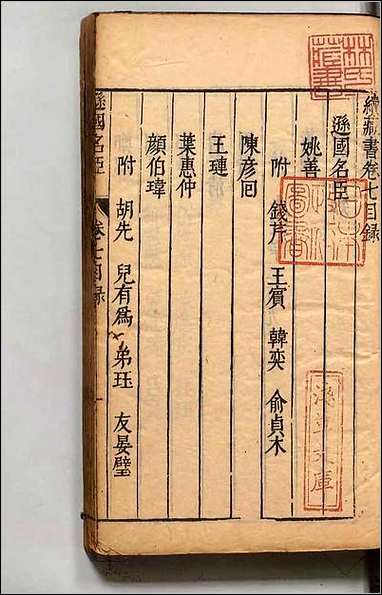 續藏書卷七目錄
遜國名臣
姚善
附 錢芹 王賓 韓奕 俞貞木
陳彥回
王璉
葉惠仲
顏伯瑋
附 胡先 兒有為 弟珏 友晏璧
遜國名臣 卷七目錄
林氏藏書
圖書
文庫